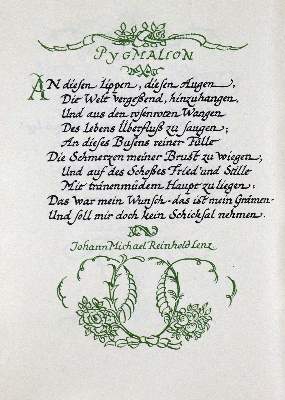 PYGMALION
AN diesen Lippen, diesen Augen,
Die Welt vergeßend, hinzuhangen,
Und aus den rosenroten Wangen
Des Lebens Überfluß zu saugen;
An dieses Busens reiner Fülle
Die Schmerzen meiner Brust zu wiegen,
Und auf des Schoßes Fried' und Stille
Mit tränenmüdem Haupt zu liegen:
Das war mein Wunsch - das ist mein Grämen -
Und soll mir doch kein Schicksal nehmen.
Johann Michael Reinhold Lenz